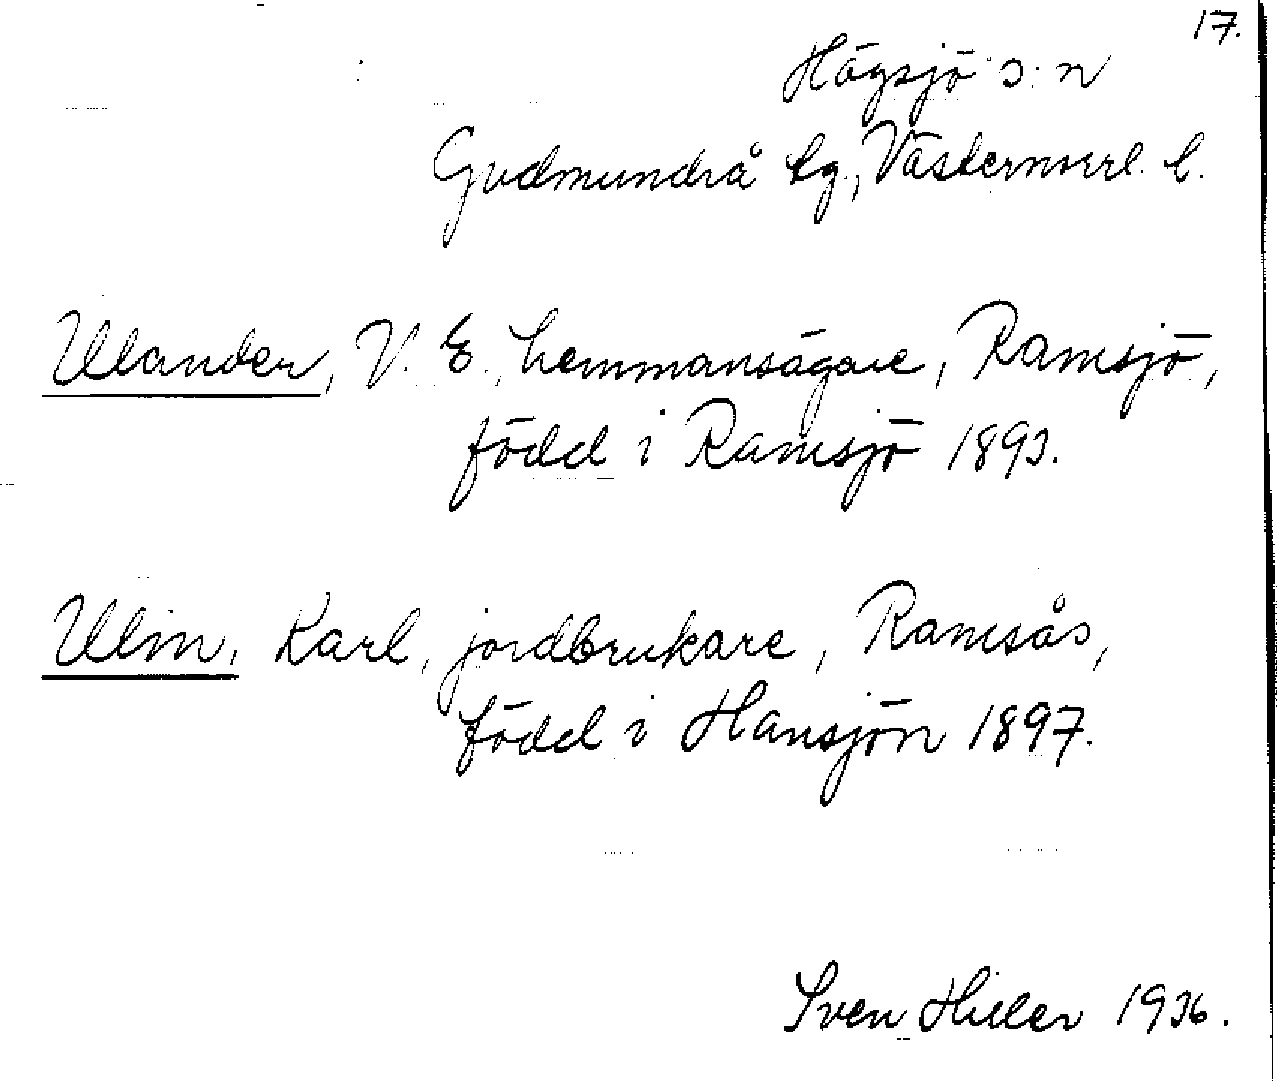 17.
Högsjö s:n
Gudmundrå tg., Västernorrl. l.
Ulander, V. E., hemmansägare, Ramsjö,
född i Ramsjö 1893.
Ulin, Karl, jordbrukare, Ramsås,
född i Hansjön 1897.
Sven Hiller 1936.